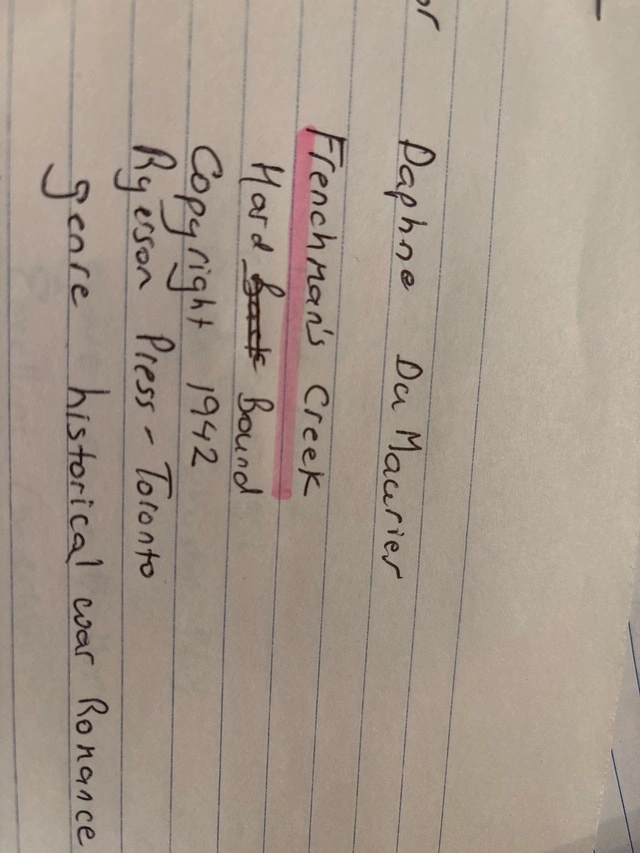 or
Daphne Du Maurier
Frenchman's Creek
Hard Bound
Copyright 1942
Ryerson Press - Toronto
genre historical war Romance